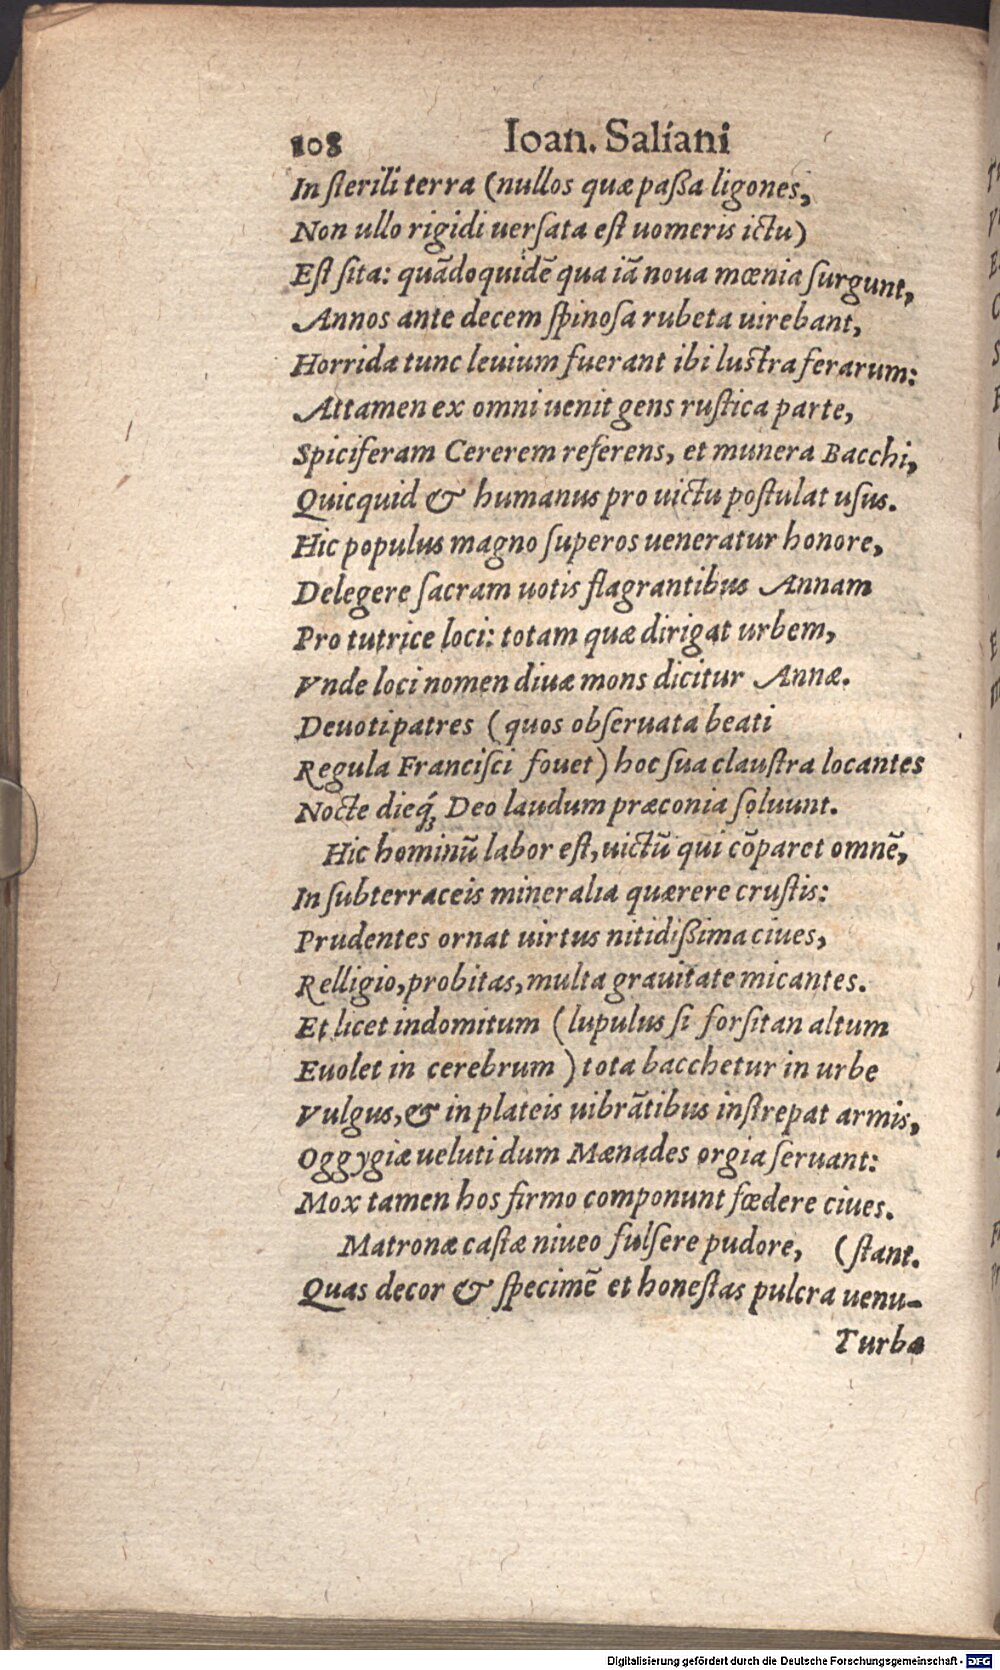 108 Ioan. Saliani
In ſterili terra (nullos quæ paßa ligones,
Non ullo rigidi uerſata eſt uomeris ictu)
Eſt ſita: quādoquidē qua iā noua mœnia ſurgunt,
Annos ante decem ſpinoſa rubeta uirebant,
Horrida tunc leuium fuerant ibi luſtra ferarum:
Attamen ex omni uenit gens ruſtica parte,
Spiciferam Cererem referens, et munera Bacchi,
Quicquid & humanus pro uictu poſtulat uſus.
Hic populus magno ſuperos ueneratur honore,
Delegere ſacram uotis flagrantibus Annam
Pro tutrice loci: totam quæ dirigat urbem,
Vnde loci nomen diuæ mons dicitur Annæ.
Deuoti patres (quos obſeruata beati
Regula Franciſci fouet) hoc ſua clauſtra locantes
Nocte dieq́; Deo laudum præconia ſoluunt.
Hic hominū labor eſt, uictū qui cōparet omnē,
In ſubterraceis mineralia quærere cruſtis:
Prudentes ornat uirtus nitidißima ciues,
Relligio, probitas, multa grauitate micantes.
Et licet indomitum (lupulus ſi forſitan altum
Euolet in cerebrum) tota bacchetur in urbe
Vulgus, & in plateis uibrātibus inſtrepat armis,
Oggygiæ ueluti dum Mænades orgia ſeruant:
Mox tamen hos firmo componunt fœdere ciues.
Matronæ caſtæ niueo fulſere pudore, (ſtant.
Quas decor & ſpecimē et honeſtas pulcra uenu-
Turba
Digitalisierung gefördert durch die Deutsche Forschungsgemeinschaft - DFG